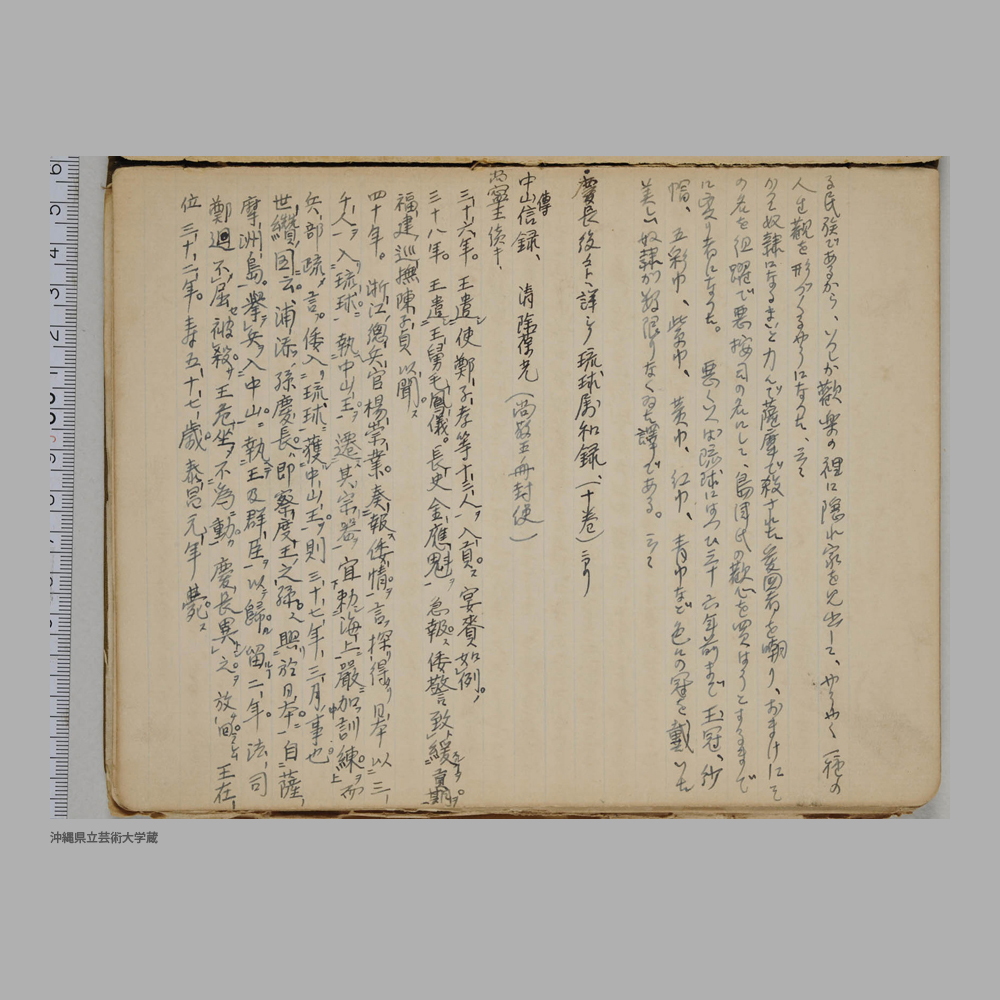 る民族であるから、いつか歓楽の裡に隠れ家を見出して、やうやく一種の
人生観を形づくるやうになつた、云々
かて奴隷になるまいと力んで薩摩で殺された愛国者を嘲り、おまけにそ
の名を組踊で悪按司の名にして、島津氏の歓心を買はうとするまで
に変り者になつた。悪くいへば琉球はつひ三十六年前まで玉冠、紗
帽、五彩巾、紫巾、黄巾、紅巾、青巾など色々の冠を戴いた
美しい奴隷が数限りなくゐた譯である。云々
・慶長役ノコト詳シク琉球属和録、(十巻)ニアリ
中山傳信録、清 徐葆光(尚敬王冊封使)
尚寧王ノ條ニ
三十六年。王遣使鄭子孝等十三人入貢。宴賚如例。
三十八年。王遣王舅毛鳳儀。長史金應魁急報倭警致緩貢期
福建巡撫陳子貞以聞
四十年。浙江總兵官楊崇業奏報倭情言探得日本以三
千人入琉球執中山王。遷其宗器宜勅海上嚴加訓練而
兵部疏言。倭入琉球獲中山王則三十七年三月事也
世纘図云浦添孫慶長即察度王之孫興於日本自薩
摩洲島擧兵入中山執王及群臣以歸留二年。法司
鄭迵不屈被殺王危坐不為動慶長異之放回王在
位三十二年。寿五十七歳泰昌元年薨
沖縄県立芸術大学蔵